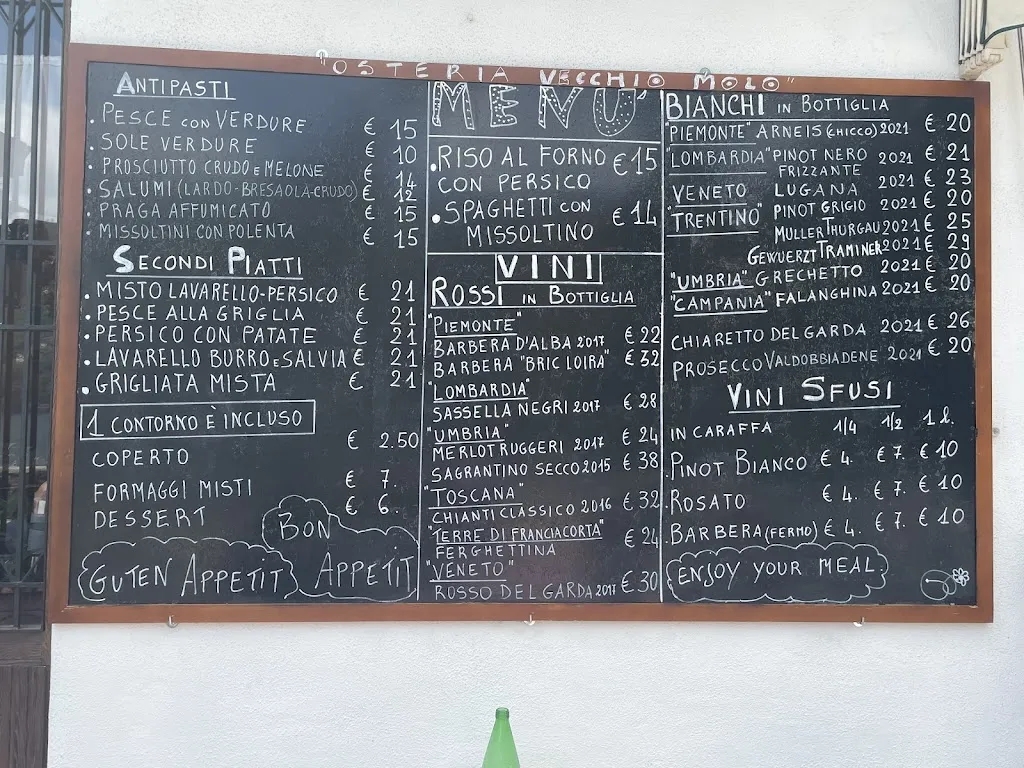 "OSTERIA VECCHIO MOLO"
ANTIPASTI
. PESCE CON VERDURE € 15
. SOLE VERDURE € 10
. PROSCIUTTO CRUDO E MELONE € 14
. SALUMI (LARDO-BRESAOLA-CRUDO) € 12
. PRAGA AFFUMICATO € 15
. MISSOLTINI CON POLENTA € 15
SECONDI PIATTI
. MISTO LAVARELLO-PERSICO € 21
. PESCE ALLA GRIGLIA € 21
. PERSICO CON PATATE € 21
. LAVARELLO BURRO E SALVIA € 21
. GRIGLIATA MISTA € 21
1 CONTORNO È INCLUSO
COPERTO € 2.50
FORMAGGI MISTI € 7.
DESSERT € 6.
BON APPETIT
GUTEN APPETIT
MENU'
. RISO AL FORNO € 15
CON PERSICO
. SPAGHETTI CON € 14
MISSOLTINO
VINI
ROSSI IN BOTTIGLIA
"PIEMONTE"
BARBERA D'ALBA 2017 € 22
BARBERA "BRIC LOIRA" € 32
"LOMBARDIA"
SASSELLA NEGRI 2017 € 28
"UMBRIA"
MERLOT RUGGERI 2017 € 24
SAGRANTINO SECCO 2015 € 38
"TOSCANA"
CHIANTI CLASSICO 2016 € 32
"TERRE DI FRANCIACORTA"
FERGHETTINA € 24
"VENETO"
ROSSO DEL GARDA 2017 € 30
BIANCHI IN BOTTIGLIA
"PIEMONTE" ARNEIS (CHICCO) 2021 € 20
LOMBARDIA" PINOT NERO 2021 € 21
FRIZZANTE
VENETO LUGANA 2021 € 23
"TRENTINO" PINOT GRIGIO 2021 € 20
MULLER THURGAU 2021 € 25
GEWUERZTRAMINER 2021 € 29
"UMBRIA" GRECHETTO 2021 € 20
"CAMPANIA" FALANGHINA 2021 € 20
CHIARETTO DEL GARDA 2021 € 26
PROSECCO VALDOBBIADENE 2021 € 20
VINI SFUSI
IN CARAFFA 1/4 1/2 1 l.
PINOT BIANCO € 4. € 7. € 10
ROSATO € 4. € 7. € 10
BARBERA (FERMO) € 4. € 7. € 10
ENJOY YOUR MEAL.